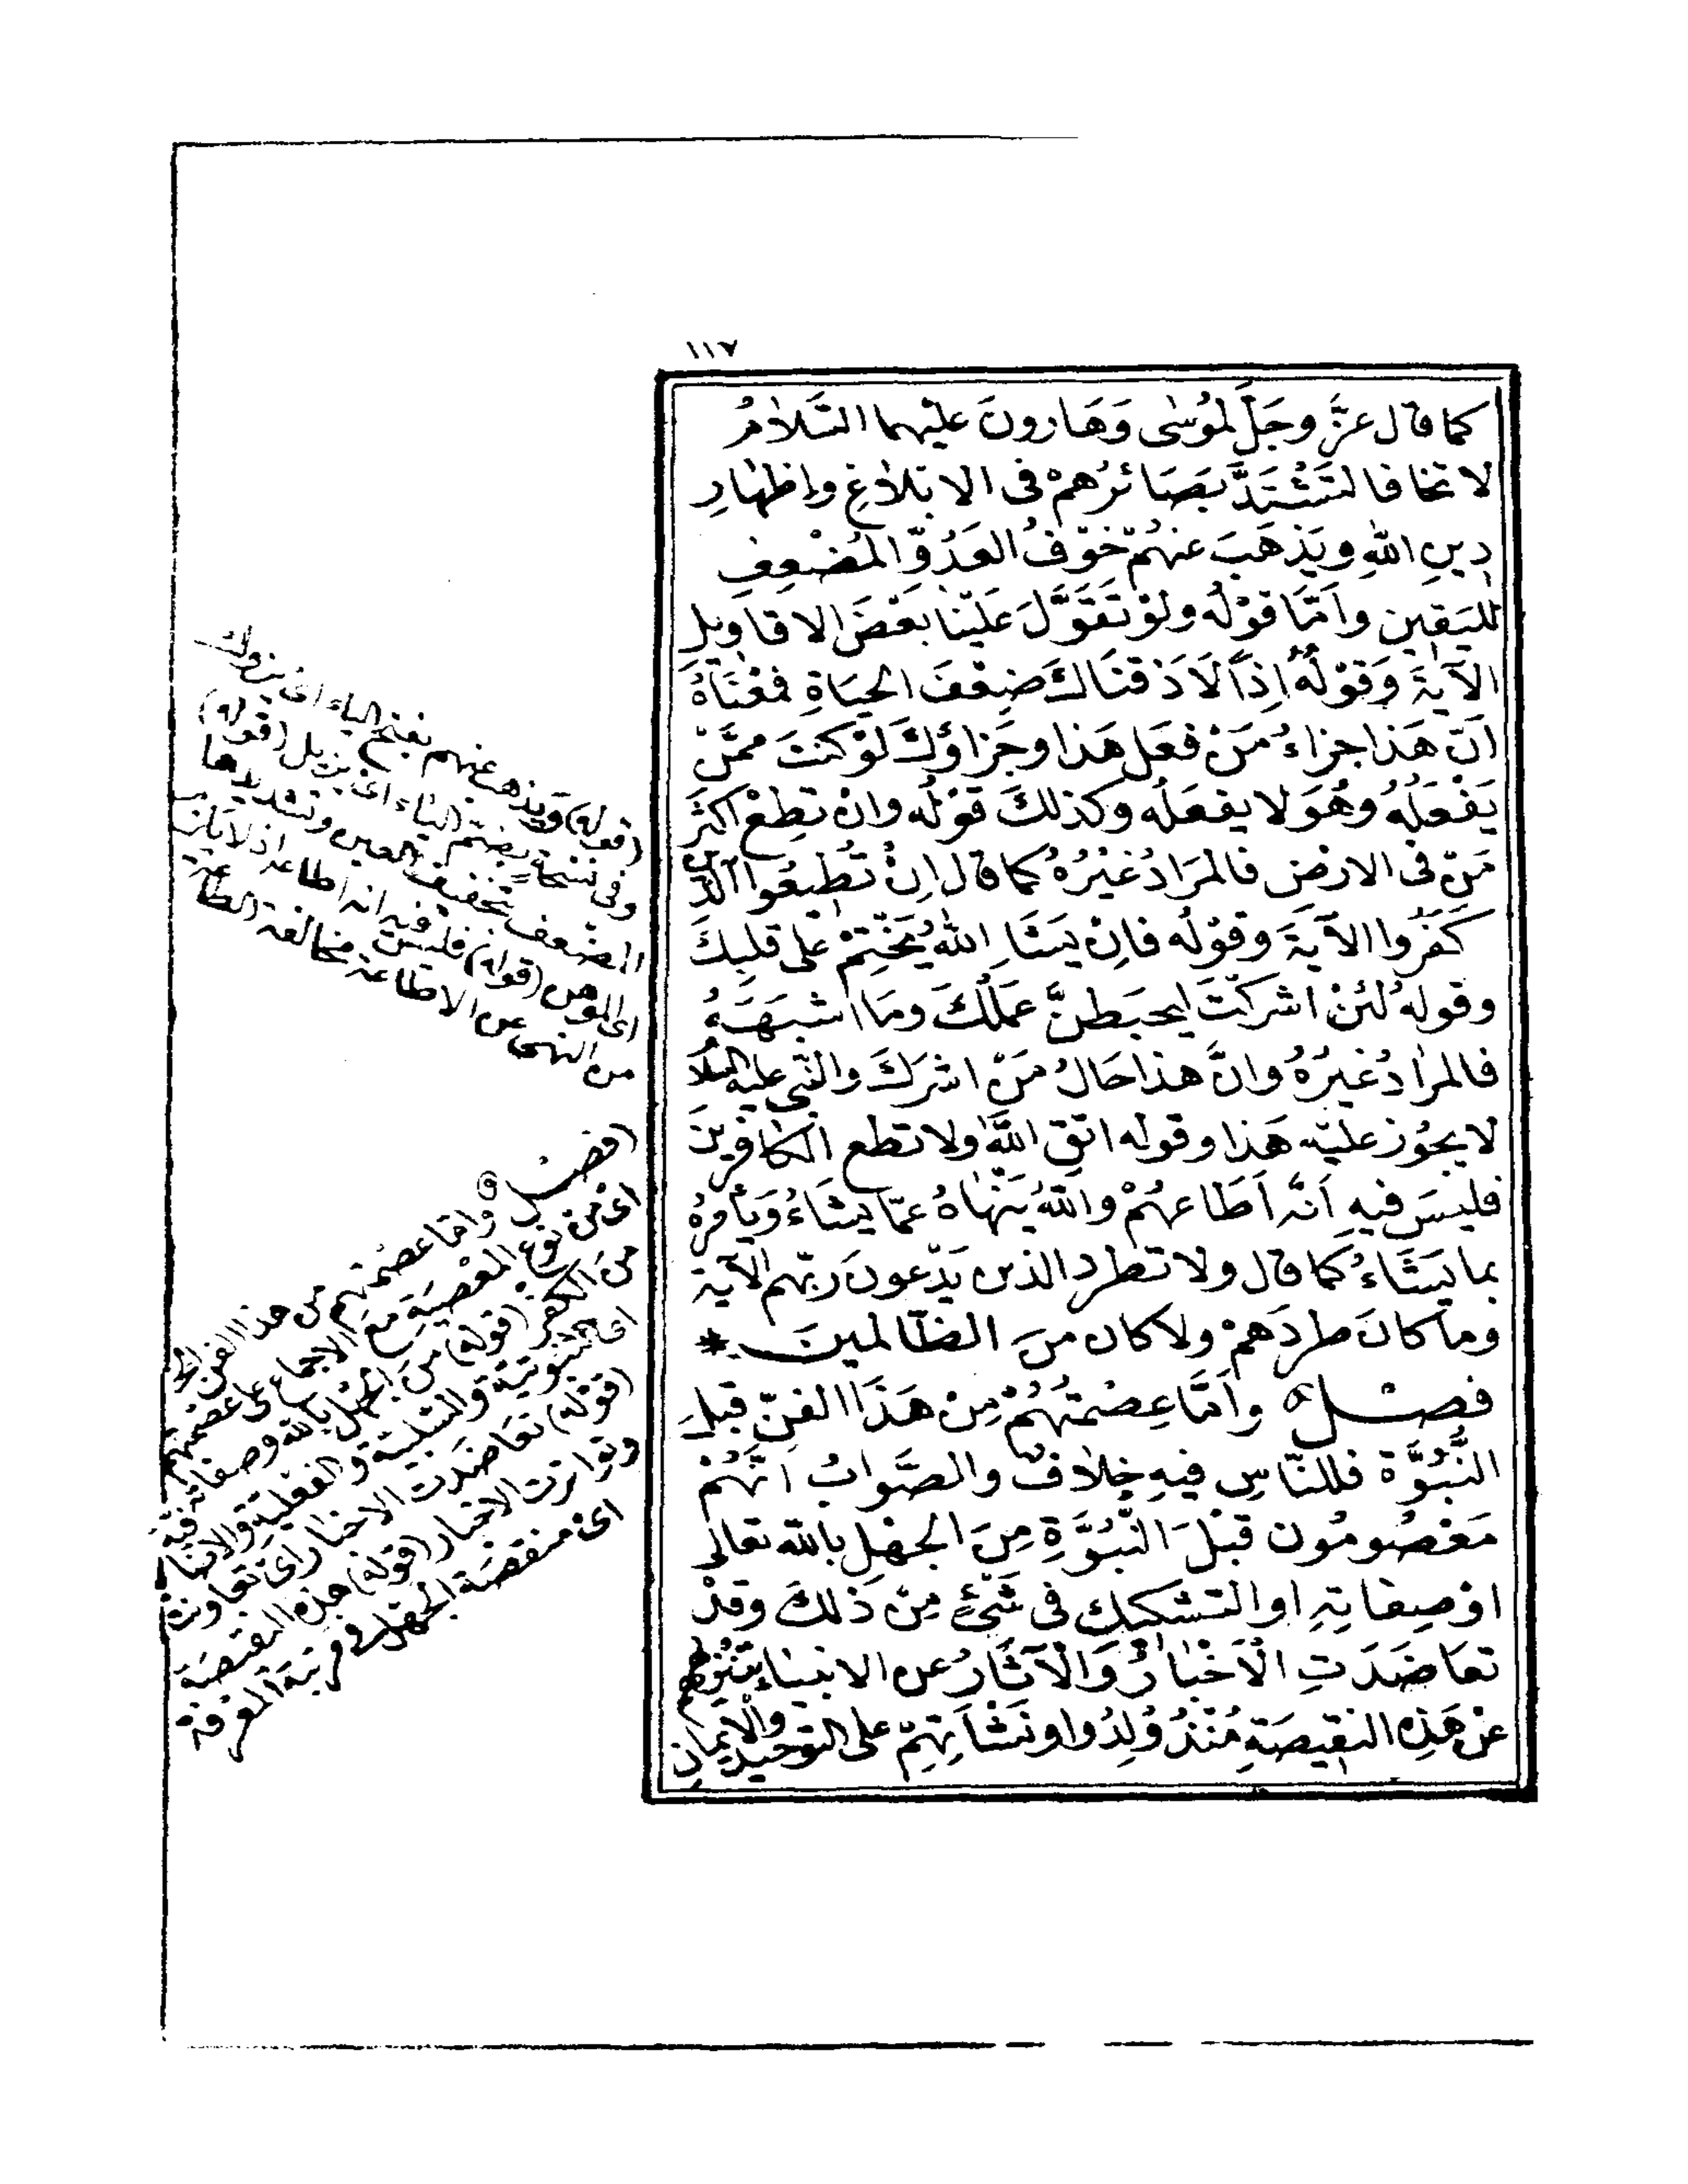 ١١٧
كما قال عزَّ وجَلَّ لمُوسٰى وَهَارونَ عليهما السَّلامُ
لا تخافا لتَشْتَدَّ بَصَائرُهمْ فى الابلاغِ وإظهارِ
دِينِ اللهِ ويَذْهَبَ عنهُمْ خَوْفُ العَدُوِّ المُضْعِفِ
لليَقِينِ وأمَّا قوْلُه ولوْ تَقَوَّلَ عَلَيْنَا بَعْضَ الاقاويلِ
الآيَةَ وَقَوْلُهُ إذاً لَأَذَقنَاكَ ضِعْفَ الحيَاةِ فمَعْنَاهُ
أنّ هَذا جزاءُ مَنْ فعَل هَذا وجَزاؤكَ لوْ كنتَ ممَّنْ
يَفْعَلُهُ وهُوَ لا يفعَلُه وكذلكَ قوْلُه وانْ تطِعْ اكثَر
مَنْ فى الارْضِ فالمرَادُ غَيْرُهُ كما قال إنْ تُطيعُوا الّذين
كَفَروا الآيَةَ وقوْلُه فانْ يَشَأِ اللهُ يَخْتِمْ على قلبِكَ
وقوله لئنْ اشركتَ ليحبَطنَّ عَملُكَ ومَا اشبَهَهُ
فالمرادُ غيرُهُ وانَّ هذا حَالُ مَنْ اشرَكَ والنّبى عليه السلا
لا يجُوز عليْه هَذا وقوله اتّقِ اللهَ ولا تطع الكافرينَ
فليْسَ فيهِ أنّه أطَاعهُمْ واللهُ يَنْهَاهُ عمّا يشَاءُ وَيَأمرُهُ
بما يَشَاءُ كما قال ولا تطرد الذين يَدْعونَ ربّهم الآية
وما كانَ طردَهمْ ولا كان منَ الظّالمينَ *
فصْل وأمَّا عِصْمتُهُمْ مِنْ هَذا الفنّ قبلَ
النُّبُوَّة فللنّاسِ فيهِ خِلافٌ والصَّوابُ أنّهُمْ
مَعْصُومُون قبْلَ النُّبُوَّةِ مِنَ الجهْلِ بالله تعالى
اوْ صِفاتِه او التشكيك فى شَىْءٍ مِنْ ذَلكَ وقدْ
تعَاضَدَتِ الْأَخْبَارُ وَالْآثَارُ عن الانبياء بتنْزيههم
عنْ هَذِه النقيصَةِ مُنْذُ وُلِدُوا ونَشأتِهِمْ على التوحيد والإيمان
(قوله) ويذهَب عنهم بفتح الياء اى يزول
وفى نسخة بضمّ الياء اى يزيل (قوله)
المضعف بتخفيف العين وتشديدها
اى الموهن (قوله) فليس فيه انه اطاعهم اذ لا يلزم
من النهى عن الاطاعة مخالفة الطاعة
(فصل) وامّا عصمتهم من هذا الفن الخ
اى من نوع المعْصية مع الاجماع على عصمتهم
من الكفر (قوله) من الجهْل بالله وصفاته
الثبوتية والسّلبيّة والفعْليّة
(قوله) تعاضدت الاخبار اى تعاونت
وتواترت الاخبار (قوله) هذه النقيصَة
اى منقصَة الجهْل فى مرتبة المعرفة